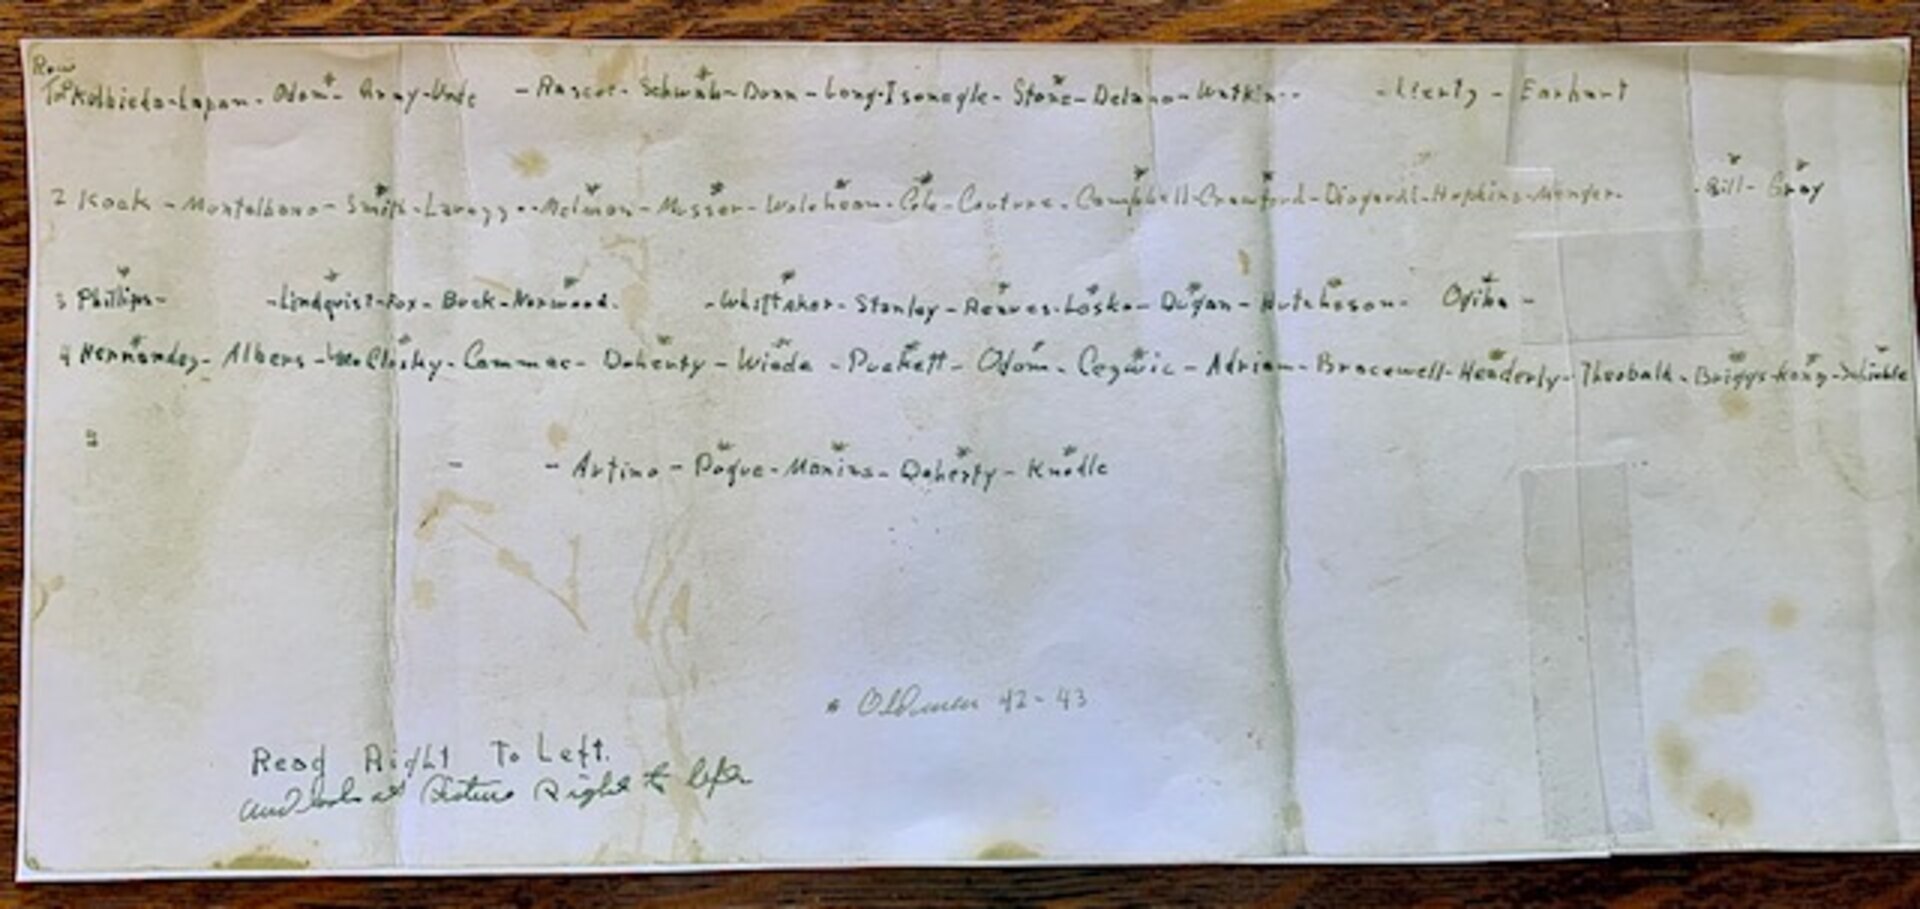 Row
Top Kolbieda-Lapan-Odom*- Array-Unde -Rascoe-Schwab*-Dunn-Long-Isenagle-Stone*-Delano-Watkin-- - - Earhart
2 Kook-Montalbano-Smith*- -Melman*-Musser*- -Cole*-Couture-Campbell*-Crawford*- -Hopkins-Menger. -Bill*-Gray*
3 Phillips*- -Lindquist*-Fox-Buck-Norwood*. -Whittaker*-Stanley-Reaves*-Loska*-Dugan*-Hutcheson*- -
4 Hernandez*-Albers-McClosky*-Cammac-Doherty*-Wiede-Puckett*-Odom*-Cegavic*-Adrian-Bracewell-Henderly*-Theobald-Briggs*-Kong*-
- -Artino-Pogue*-Monins*-Doherty*-Knodle*
* Oldmen 42-43
Read Right To Left.
and look at Picture Right to left